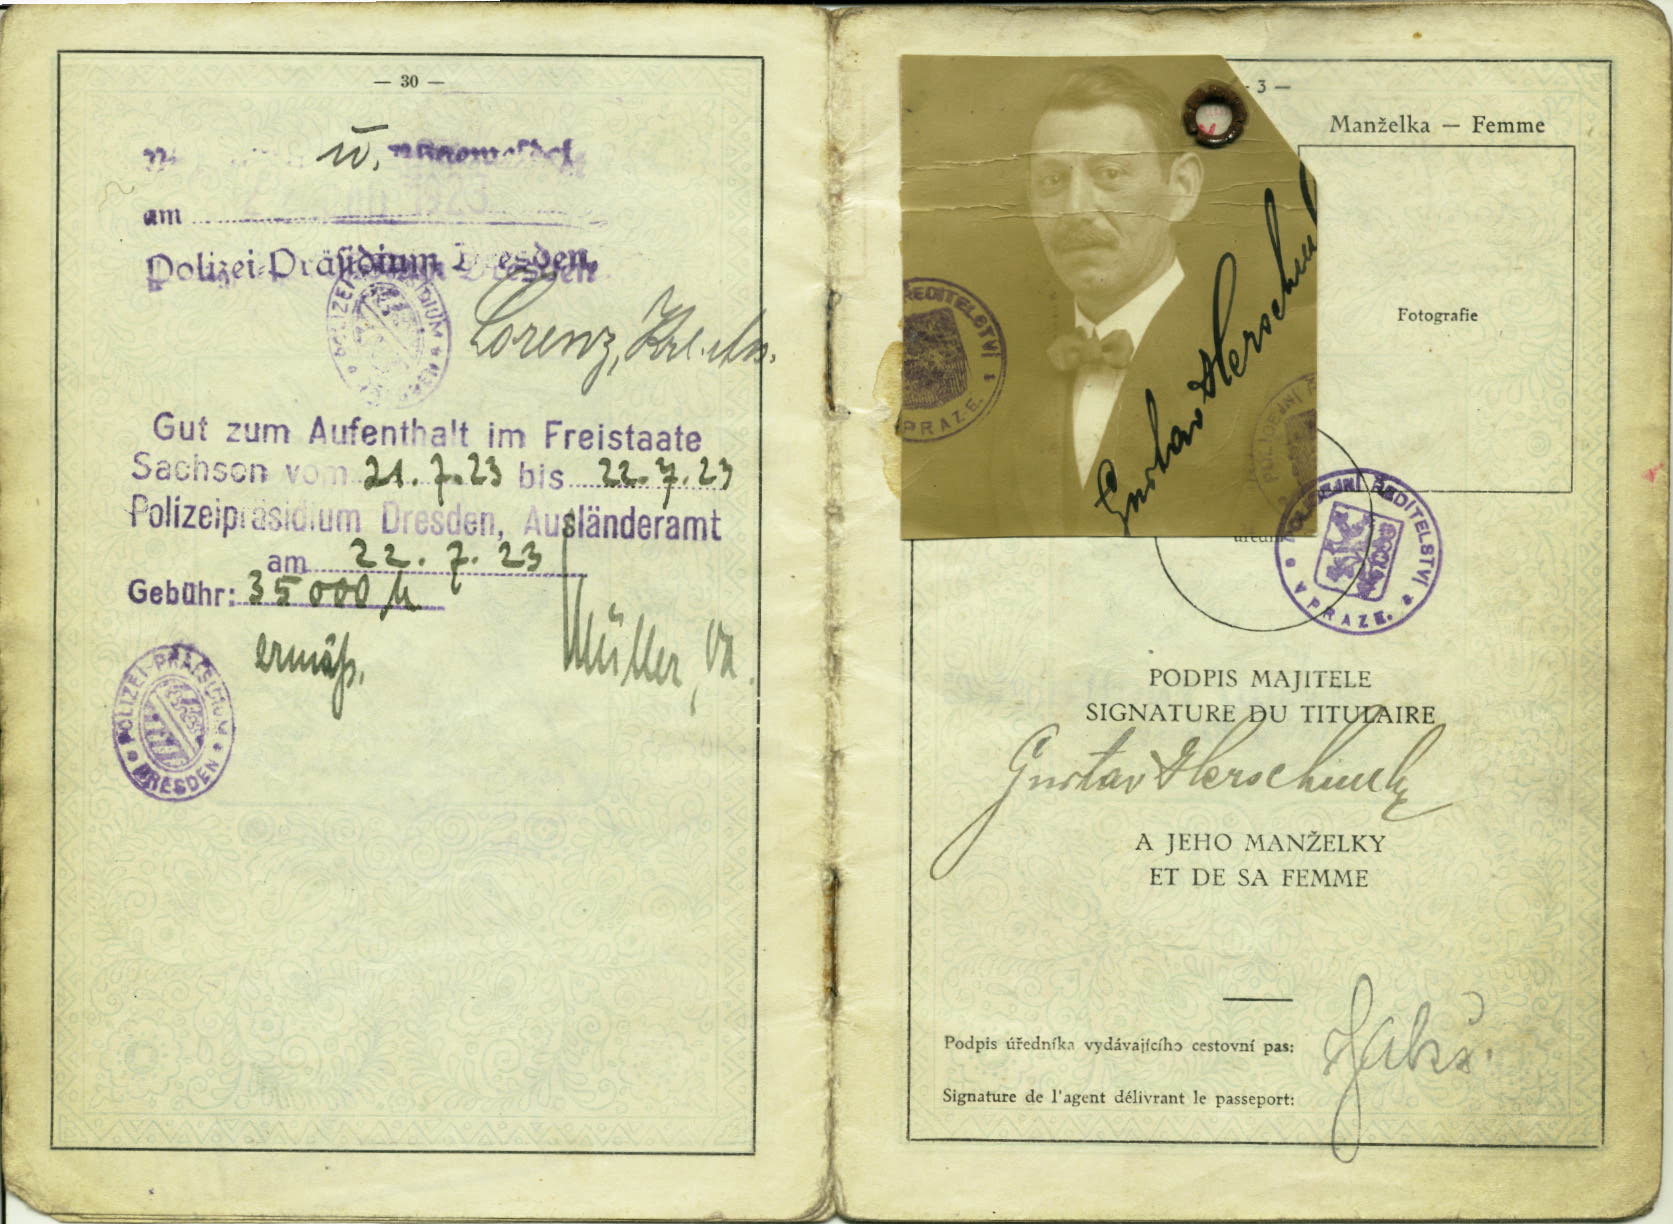 — 30 —
am
Polizei-Präsidium Dresden
POLIZEI PRÄSIDIUM DRESDEN
Lorenz,
Gut zum Aufenthalt im Freistaate
Sachsen vom 21. 7. 23 bis 22. 7. 23
Polizeipräsidium Dresden, Ausländeramt
am 22. 7. 23
Gebühr: 35 000 M
ermäß.
Müller,
POLIZEI-PRAESIDIUM DRESDEN
3 —
Manželka — Femme
Fotografie
Gustav
ŘEDITELSTVÍ V PRAZE.
POLICEJNÍ
POLICEJNÍ ŘEDITELSTVÍ V PRAZE.
PODPIS MAJITELE
SIGNATURE DU TITULAIRE
Gustav
A JEHO MANŽELKY
ET DE SA FEMME
Podpis úředníka vydávajícího cestovní pas:
Signature de l'agent délivrant le passeport: